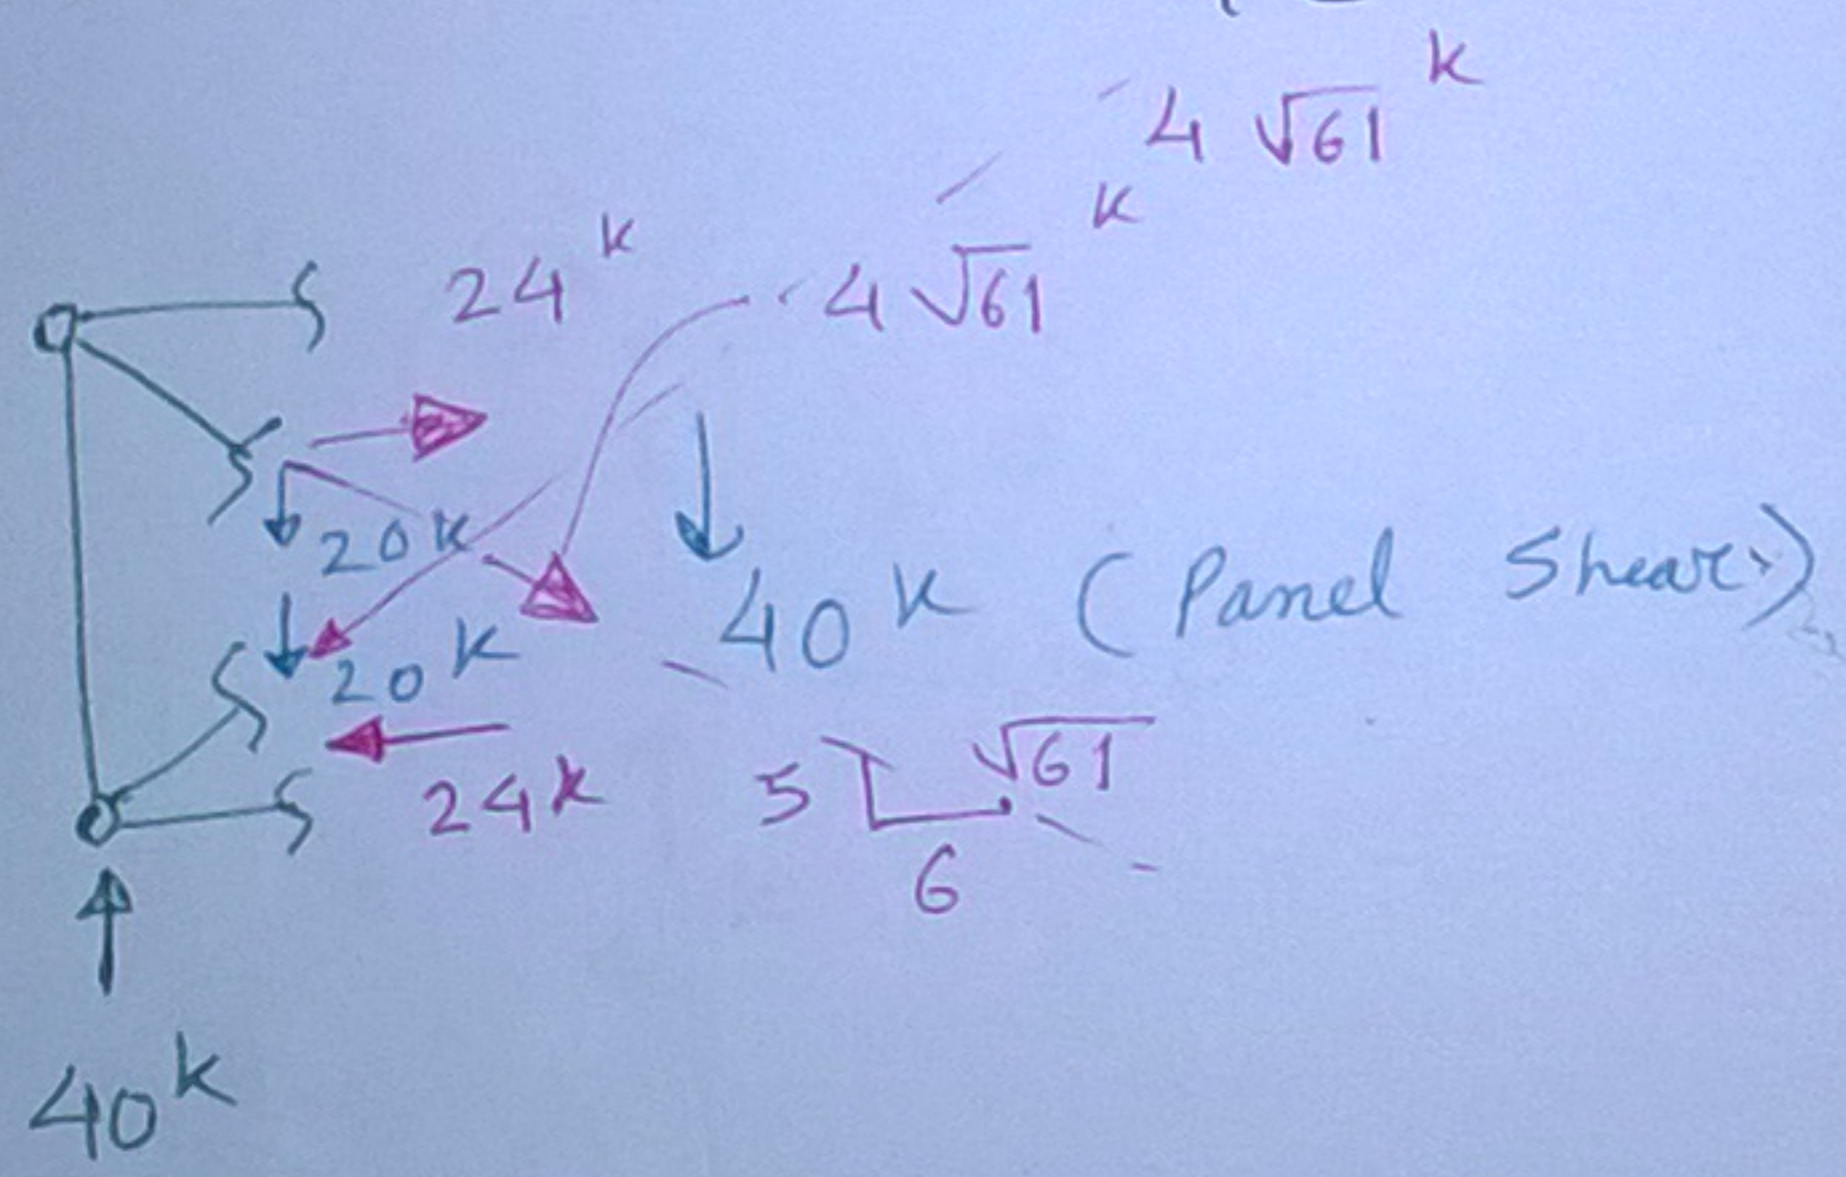 4 √61 k
24 k
4 √61 k
20 k
20 k
40 k (Panel Shear)
24 k
5
√61
6
40 k